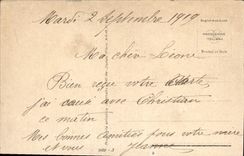 Mardi 2 Septembre 1919
Ma chère Léone
Bien reçu votre carte
j'ai causé avec Christian
ce matin
Mes bonnes amitiés pour votre mère
et vous Jeanne